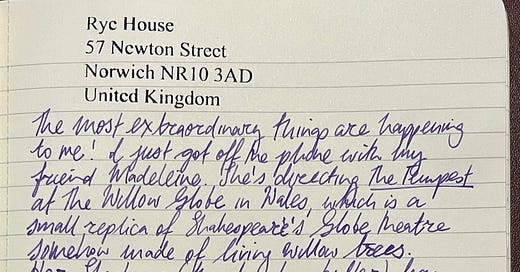 Rye House
57 Newton Street
Norwich NR10 3AD
United Kingdom
The most extraordinary things are happening
to me! I just got off the phone with my
friend Madeleine. She's directing The Tempest
at The Willow Globe in Wales, which is a
small replica of Shakespeare's Globe Theatre
somehow made of living willow trees.